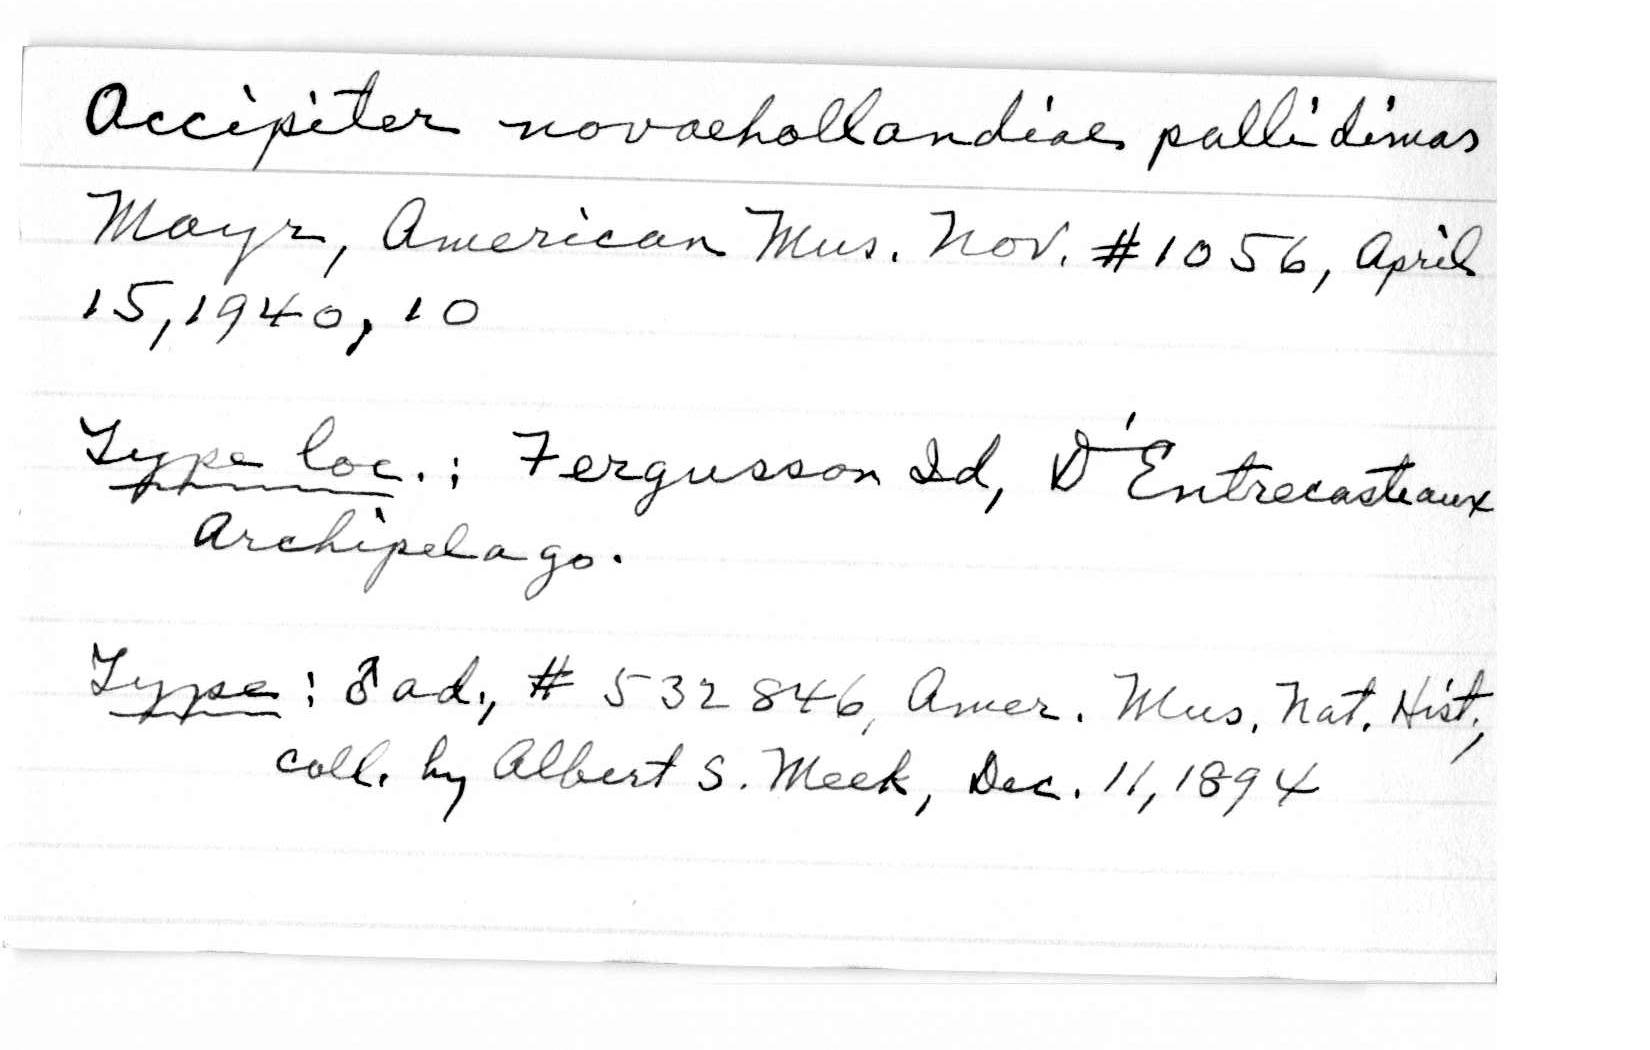 Accipiter novaehollandiae pallidimas
Mayr, American Mus. Nov. #1056, April
15, 1940, 10
Type loc.: Fergusson Id, D'Entrecasteaux
Archipelago.
Type: ♂ ad., # 532846, Amer. Mus. Nat. Hist.,
coll. by Albert S. Meek, Dec. 11, 1894